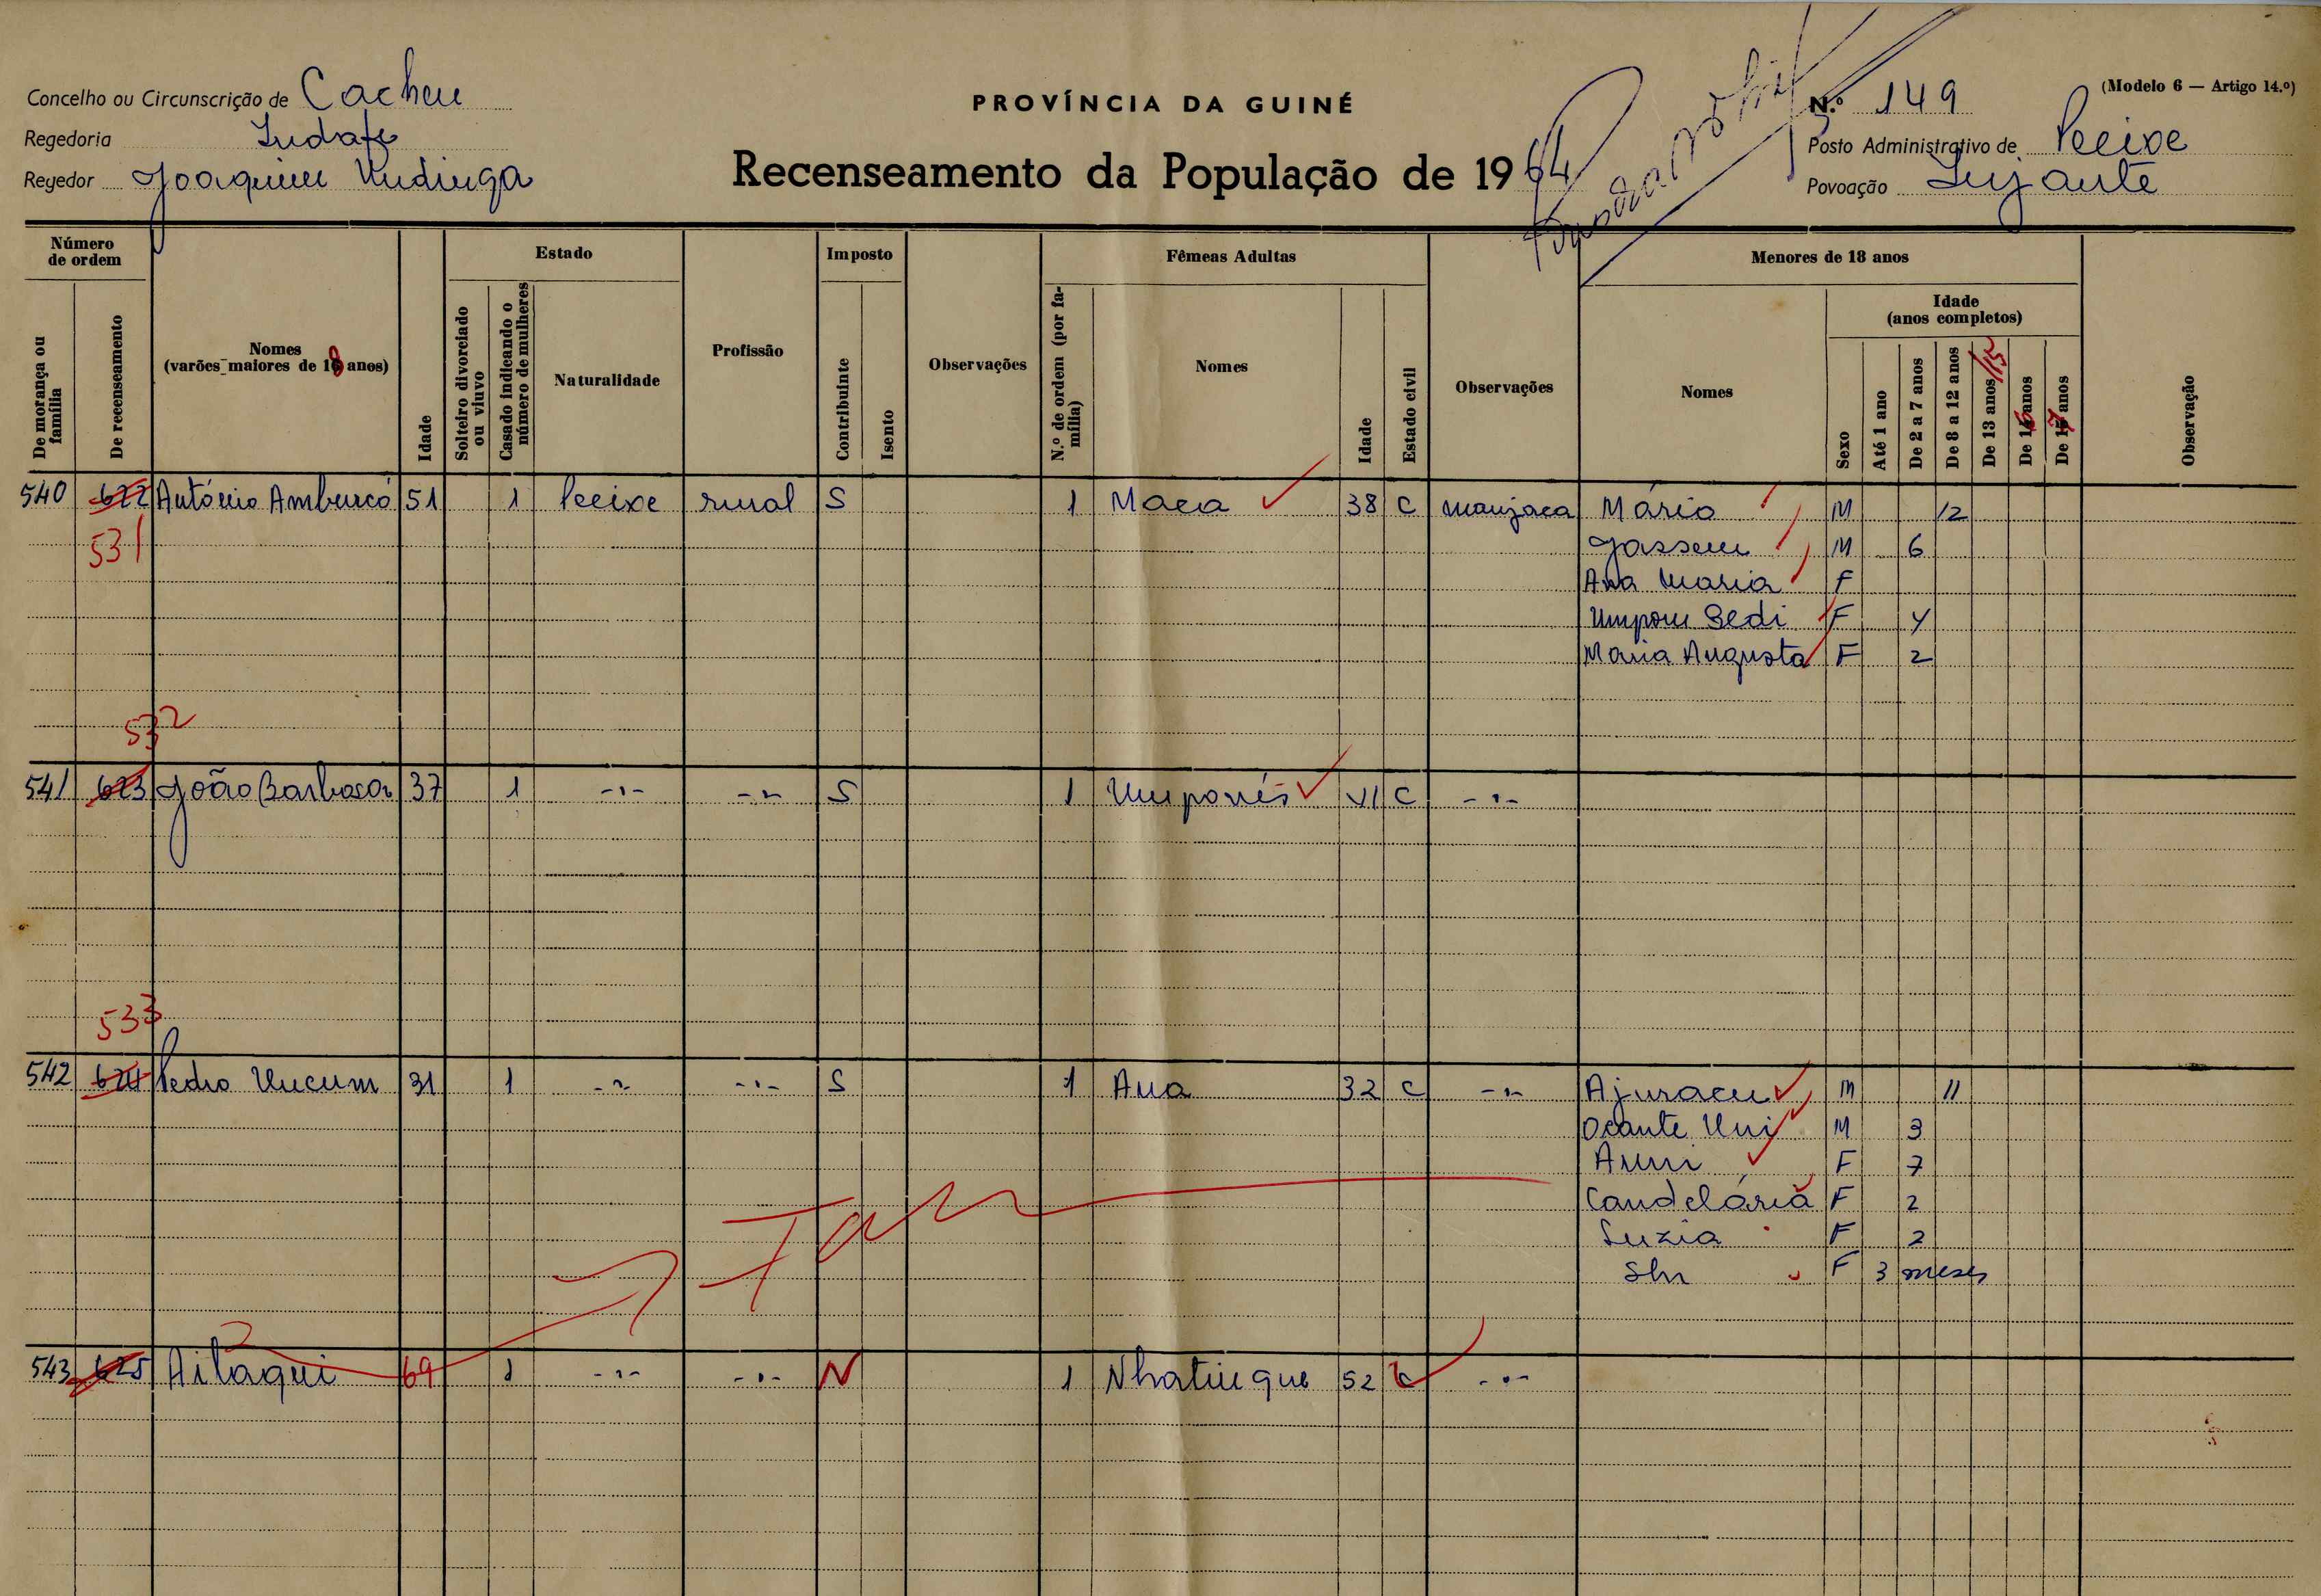 Concelho ou Circunscrição de Cacheu
Regedoria Indafe
Regedor Joaquim Undinga
PROVÍNCIA DA GUINÉ
Recenseamento da População de 1964
(Modelo 6 — Artigo 14.º)
N.º 149
Posto Administrativo de Pecixe
Povoação
Número de ordem
De morança ou família
De recenseamento
Nomes (varões maiores de 18 anos)
Idade
Estado
Solteiro divorciado ou viuvo
Casado indicando o número de mulheres
Naturalidade
Profissão
Imposto
Contribuinte
Isento
Observações
Fêmeas Adultas
N.º de ordem (por família)
Nomes
Idade
Estado civil
Observações
Menores de 18 anos
Nomes
Sexo
Idade (anos completos)
Até 1 ano
De 2 a 7 anos
De 8 a 12 anos
De 13 anos /15
De 16 anos
De 17 anos
Observação
540 622 António Ambucó 51 1 Pecixe rural S 1 Maca 38 C manjaca Mário M 12
531 Jassem M 6
Ana Maria F
Umpom Sedi F 4
Maria Augusta F 2
532
541 623 João Barbosa 37 1 -"- -"- S 1 Umponés 41 C -"-
533
542 624 Pedro Ucum 31 1 -"- -"- S 1 Ana 32 C -"- Ajuracu M 11
Ocante Uni M 3
F 7
Candelária F 2
Luzia F 2
F 3 meses
543 625 Aitaqui 69 1 -"- -"- N 1 Nhatinque 52 C -"-